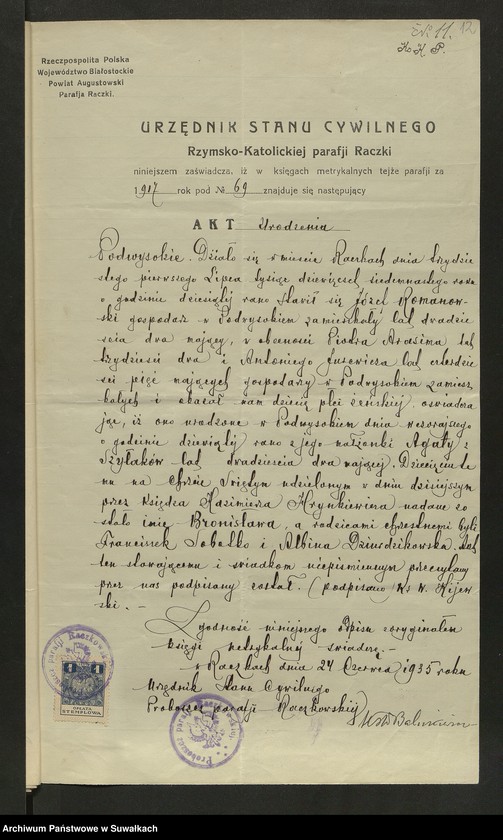 11. 12
K. K. P.
Rzeczpospolita Polska
Województwo Białostockie
Powiat Augustowski
Parafja Raczki.
URZĘDNIK STANU CYWILNEGO
Rzymsko-Katolickiej parafji Raczki
niniejszem zaświadcza, iż w księgach metrykalnych tejże parafji za
1917 rok pod № 69 znajduje się następujący
AKT Urodzenia
Podwysokie. Działo się w mieście Raczkach dnia trzydzie
stego pierwszego Lipca tysiąc dziewięćset siedemnastego roku
o godzinie dziesiątej rano stawił się Józef Romanow-
ski gospodarz w Podwysokiem zamieszkały lat dwadzie
ścia dwa mający, w obecności Piotra Arasima lat
trzydzieści dwa i Antoniego Jusewicza lat czterdzie
ści pięć mających gospodarzy w Podwysokiem zamiesz
kałych i okazał nam dziecię płci żeńskiej, oświadcza
jąc, iż ono urodzone w Podwysokiem dnia wczorajszego
o godzinie dziewiątej rano z jego małżonki Agaty z
Szyłaków lat dwadzieścia dwa mającej. Dziecięciu te
mu na Chrzcie Świętym udzielonym w dniu dzisiejszym
przez księdza Kazimierza Hrynkiewicza nadane zo
stało imię Bronisława, a rodzicami chrzestnemi byli
Franciszek Sobolko i Albina Dzimdzikowska. Akt
ten stawającemu i świadkom niepiśmiennym przeczytany
przez nas podpisany został. (podpisano) Ks. W. Kijew
ski. –
Zgodność niniejszego Odpisu z oryginałem
księgi metrykalnej świadczę –
w Raczkach dnia 24 Czerwca 1935 roku
Urzędnik Stanu Cywilnego
Proboszcz parafji Raczkowskiej
1
OPŁATA
STEMPLOWA
Archiwum Państwowe w Suwałkach